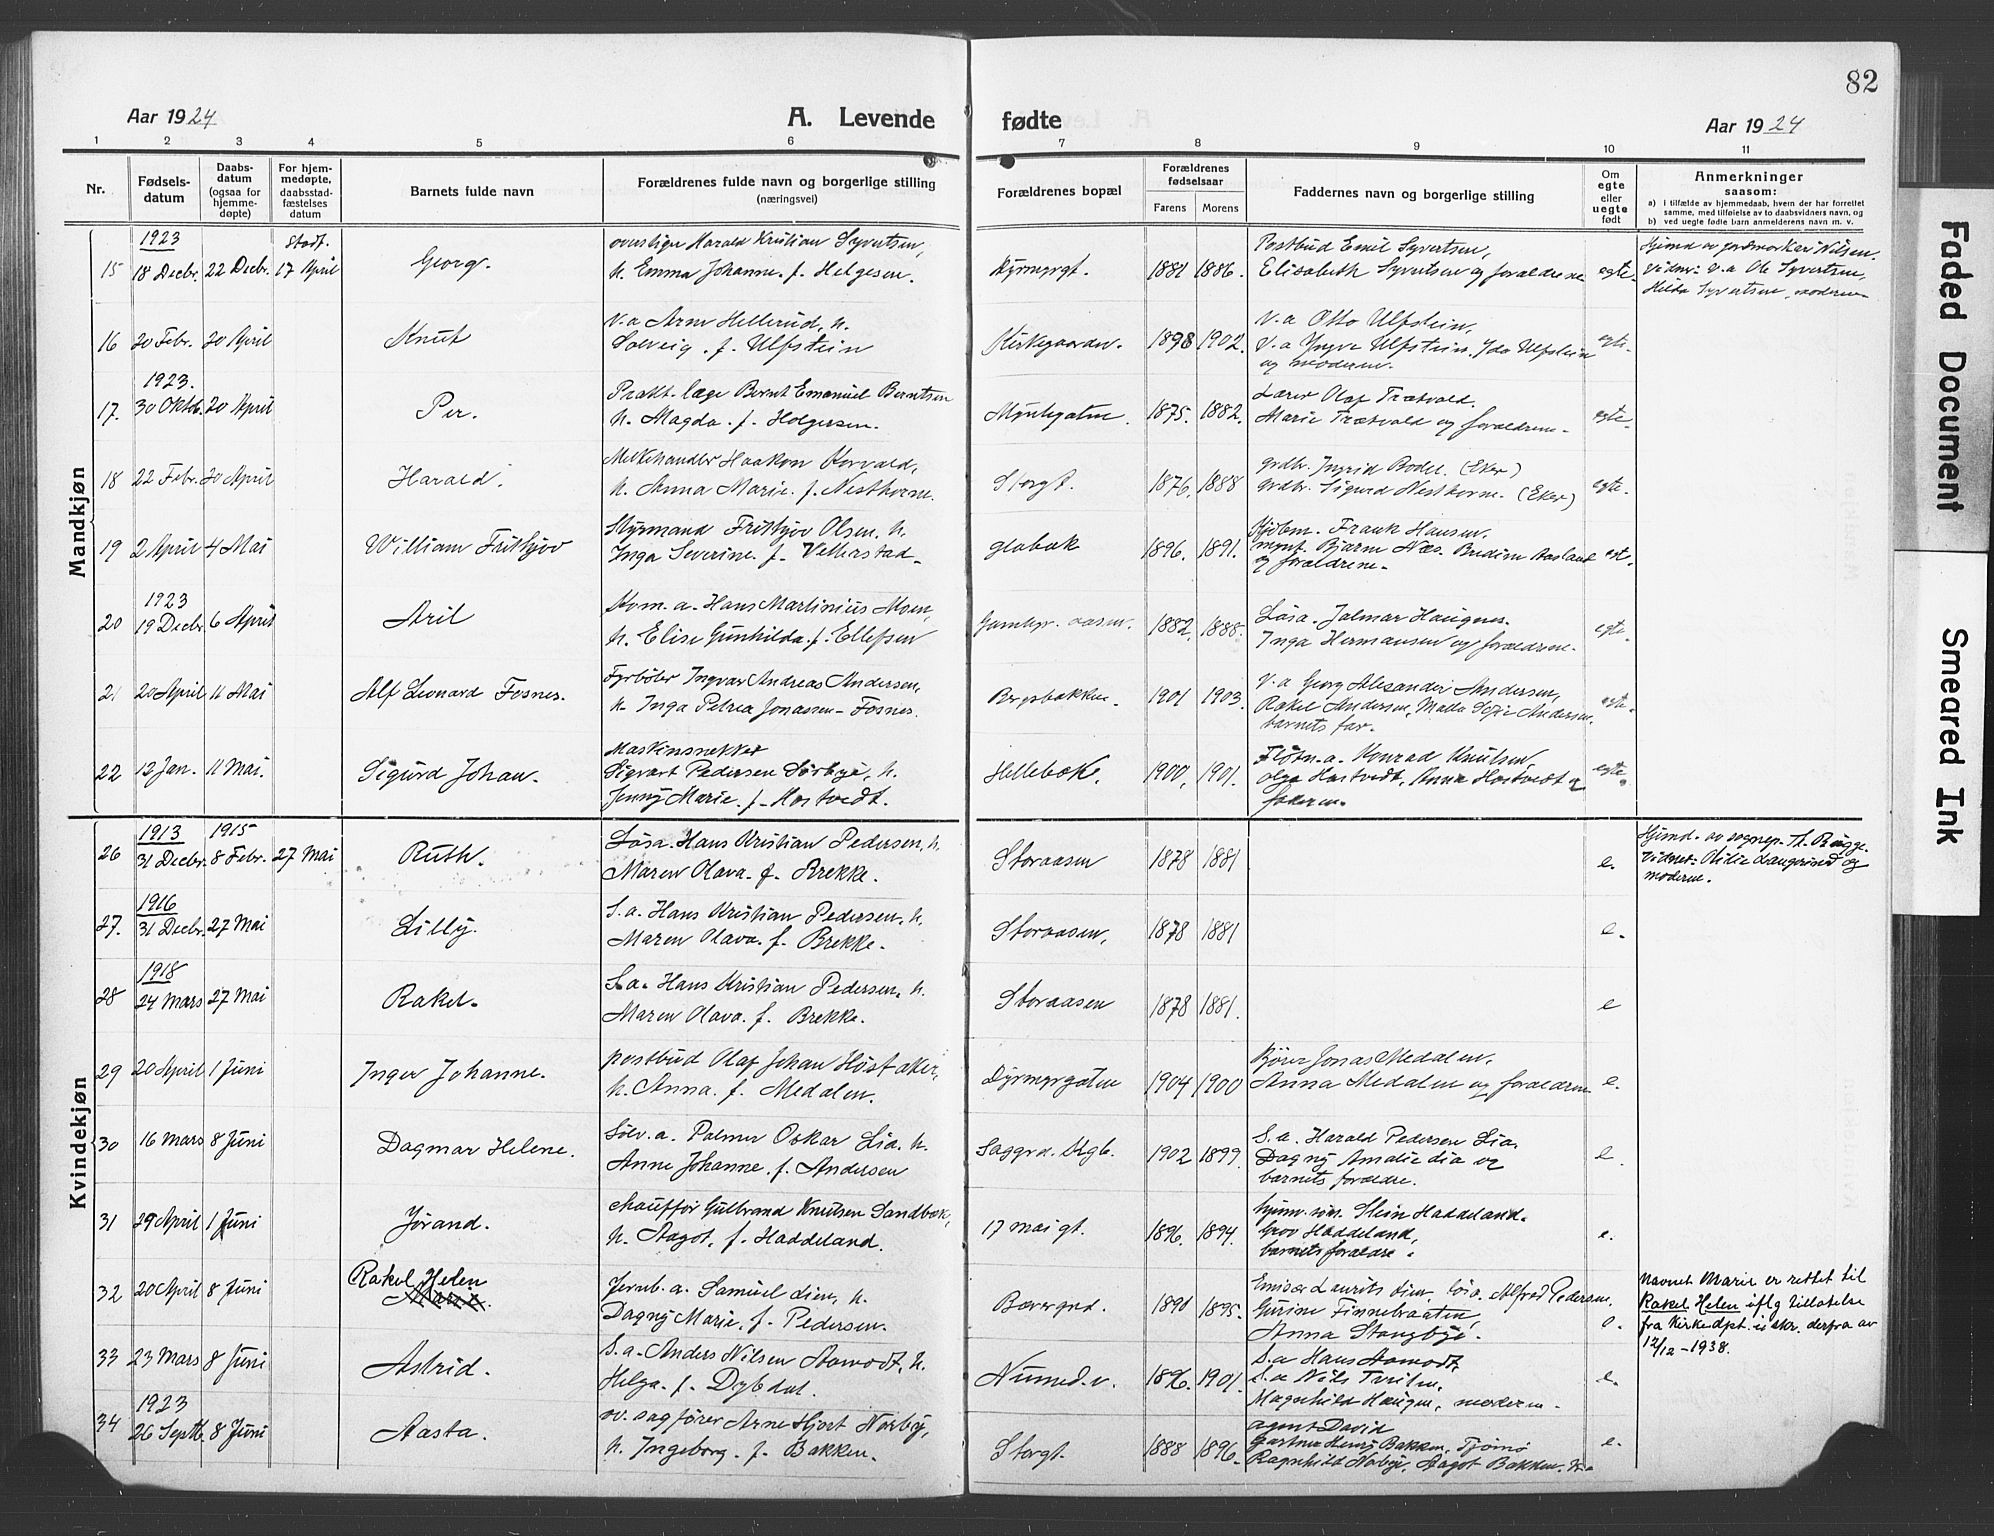 82
Aar 1924
A. Levende
fødte
Aar 1924
1 2 3 4 5 6 7 8 9 10 11
Nr.
Fødsels-
datum
Daabs-
datum
(ogsaa for
hjemme-
døpte)
For hjem-
medøpte,
daabsstad-
fæstelses
datum
Barnets fulde navn
Forældrenes fulde navn og borgerlige stilling
(næringsvei)
Forældrenes bopæl
Forældrenes
fødselsaar
Farens Morens
Faddernes navn og borgerlige stilling
Om
egte
eller
uegte
født
Anmerkninger
saasom:
a) i tilfælde av hjemmedaab, hvem der har forrettet
samme, med tilføielse av to daabsvidners navn, og
b) ved uegte fødte barn anmelderens navn m. v.
Mandkjøn
1923 Stadf.
15 18 Decbr. 22 Decbr. 17 April Georg.
Harald Kristian Syvertsen,
h. Emma Johanne. f. Helgesen.
Dyrmyrgt. 1881 1886.
Postbud Emil Syvertsen,
Elisabeth Syvertsen og forældrene egte.
Hjemd av jordmor Nilsen.
Vidner: v.a Ole Syvertsen,
Hilda Syvertsen, moderen
16 20 Febr. 20 April Knut
v.a Arne Hellerud, h.
Solveig. f. Ulfstein
Kirkegaarden. 1898 1902.
V.a Otto Ulfstein,
V.a Yngve Ulfstein. Ida Ulfstein
og moderen. egte.
1923.
17. 30 Oktob. 20 April Per.
Prakt. læge Bernt Emanuel Berntsen
h. Magda. f. Holgersen.
Myntegaten. 1875. 1882.
Lærer Olaf Trætvold.
Marie Trætvold og forældrene. egte.
18 22 Febr. 20 April Harald.
Melkehandler Haakon Korvald,
h. Anna Marie. f. Nesthorne.
Storgt. 1876. 1888
grdbr. Ingrid Bodel. (Eker)
grdbr. Sigurd Nesthorne. (Eker) egte.
19 2 April 4 Mai William Frithjov
Styrmand Frithjov Olsen. h.
Inga Severine. f. Vetterstad.
Glabak 1896. 1891.
Frank Hansen,
Bjarne Næs. Aasland
og forældrene. egt.
1923
20 19 Decbr. 6 April Aril
Kom. a. Hans Martinius Moen,
h. Elise Gunhilda. f. Ellefsen
Gamlegr. aasen. 1882. 1888.
Løsa. Jalmar Haugnes.
Inga Hermansen og forældrene. egte.
21 20 April 11 Mai Alf Leonard Fosnes.
Fyrbøter Ingvar Andreas Andersen,
h. Inga Petrea Jonassen-Fosnes.
Bergsbakken. 1901 1903.
V.a Georg Alexander Andersen,
Rakel Andersen, Andersen.
barnets far. egte.
22 12 Jan. 11 Mai. Sigurd Johan.
Maskinsnekker
Sigvart Pedersen Sørbye, h.
Jenny Marie. f. Hostvedt.
Hellebæk. 1900, 1901.
Fløtn.a. Konrad Knutsen,
Olga Hostvedt, Anna Hostvedt og
faderen. egte.
Kvindekjøn
1913 1915
26 31 Decbr. 8 Febr. 27 Mai Ruth.
Løsa. Hans Kristian Pedersen, h.
Maren Olava. f. Brekke.
Storaasen 1878 1881 e.
Hjemd. av sognepr. Th. Bugge.
Vidner: Otilie Langerud og
moderen.
1916
27. 31 Decbr. 27 Mai Lilly.
S.a. Hans Kristian Pedersen. h.
Maren Olava. f. Brekke.
Storaasen, 1878 1881 e.
1918
28 24 Mars 27 Mai Rakel.
S.a. Hans Kristian Pedersen. h.
Maren Olava. f. Brekke.
Storaasen 1878 1881. e
29 20 April 1 Juni Inger Johanne.
postbud Olaf Johan Høstaker,
h. Anna. f. Medalen.
Dyrmyrgaten 1904 1900
Kjører Jonas Medalen,
Anna Medalen og forældrene e.
30 16 Mars 8 Juni Dagmar Helene.
Sølv. a. Palmer Oskar Lia. h.
Anne Johanne. f. Andersen
Saggrd. Kgb. 1902 1899.
S.a. Harald Pedersen Lia.
Dagny Amalie Lia og
barnets forældre. e.
31 29 April 1 Juni Jørand.
Chauffør Gulbrand Knutsen Sandbæk,
h. Aagot. f. Haddeland.
17 mai gt. 1896. 1894.
Stein Haddeland.
Gro Haddeland,
barnets forældre. e.
32 20 April 8 Juni Rakel Helen
Marie.
Jernb. a. Samuel Lien, h.
Dagny Marie. f. Pedersen.
Bævergrd. 1890 1895.
Laurits Lien. Løsa. Alfred Pedersen,
Gurine Finnebraaten,
Anna Stangbye. e.
Navnet Marie er rettet til
Rakel Helen iflg tillatelse
fra Kirkedpt. i skr. derfra av
12/12-1938.
33 23 Mars 8 Juni Astrid.
S.a. Anders Nilsen Aamodt, h.
Helga. f. Dybdal.
Numed.v. 1896. 1901.
S.a Hans Aamodt,
S.a Nils
Magnhild Haugen, moderen. e.
1923
34 26 Septb. 8 Juni Aasta.
ov. sagfører Arne Hjort Norby,
h. Ingeborg. f. Bakken.
Storgt. 1888 1896.
agent David
Gartner Henry Bakken, Tjømø
Ragnhild Norbye, Aagot Bakken. e.
Faded Document
Smeared Ink